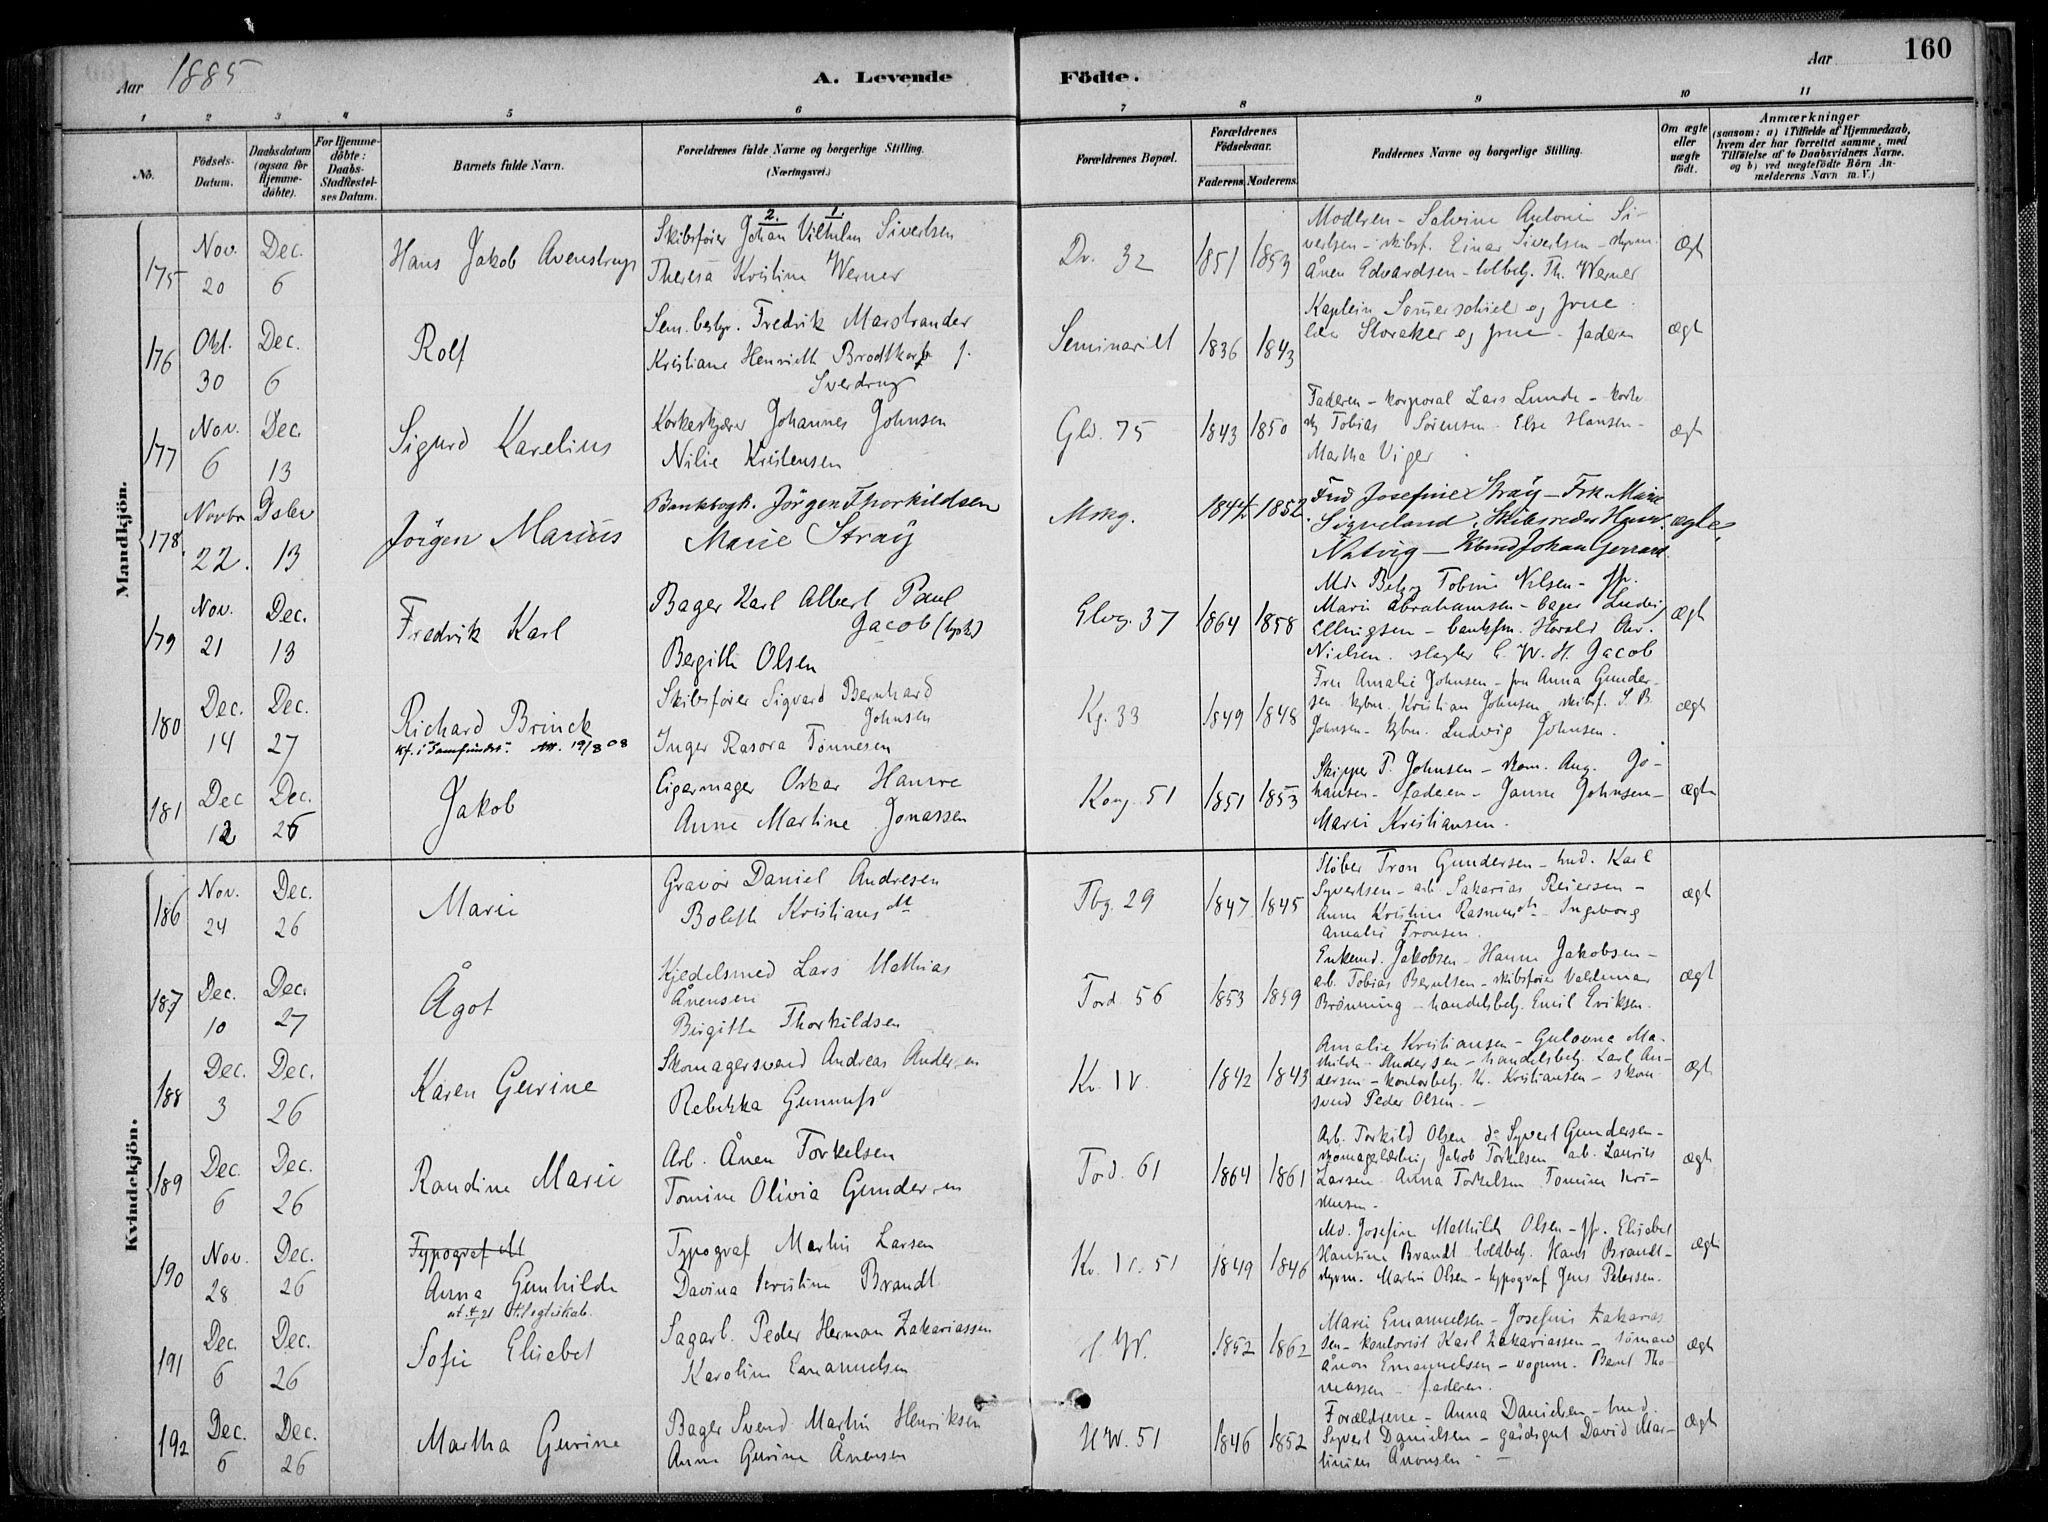 Aar 1885
A. Levende
Födte.
Aar
160
1 2 3 4 5 6 7 8 9 10 11
No.
Födsels-Datum.
Daabsdatum (ogsaa for Hjemme-döbte).
For Hjemme-döbte: Daabs-Stadfæstel-ses Datum.
Barnets fulde Navn.
Forældrenes fulde Navne og borgerlige Stilling. (Næringsvei.)
Forældrenes Bopæl.
Forældrenes Födselsaar.
Faderens. Moderens.
Faddernes Navne og borgerlige Stilling.
Om ægte eller uægte födt.
Anmærkninger
(saasom: a) i Tilfælde af Hjemmedaab, hvem der har forrettet samme, med Tilföielse af to Daabsvidners Navne. og b) ved uægtefödte Börn An-melderens Navn m. V.)
Mandkjön.
175 Nov. 20 Dec. 6
Hans Jakob Avenstrup
2. 1.
Skibsfører Johan Vilhelm Sivertsen
Theresa Kristine Werner
Dr. 32 1851 1853
Moderen - Salvine Antonie Si-
vertsen - skibsf. Einar Sivertsen - styrm.
Ånen Edvardsen - toldbetj. Th. Werner
Ægt
176 Okt. 30 Dec. 6
Rolf
Sem. bestyr. Fredrik Marstrander
Kristiane Henriette Brodtkorb f.
Sverdrup
Seminariet 1836 1843
Kaptein Sømerschiel og frue
Storaker og frue - faderen
ægt
177 Nov. 6 Dec. 13
Sigurd Karelius
Korkeskjærer Johannes Johnsen
Nilie Kristensen
Gld. 75 1843 1850
Faderen - korporal Lars Lunde - korke
skj Tobias Sørensen - Else Hansen -
Martha Viger
ægt
178. Novbr 22. Dsber 13
Jörgen Marius
Bankbogh. Jörgen Thorkildsen
Marie Stray
Mrkg. 1844 1852.
Frue Josefine Stray - Frk. Marie
Sigveland, Skibsreder Hans
Natvig - Kbmd Johan Gerrard
ægte,
179 Nov. 21 Dec. 13
Fredrik Karl
Bager Karl Albert Paul
Jacob (tysk)
Bergithe Olsen
Glvg. 37 1864 1858
Md. Betsy Tobine Nilsen - fr.
Marie Abrahamsen - bager Ludvig
Ellingsen - bankfm. Harald Chr.
Nielsen. slagter C. W. H. Jacob
ægt
180 Dec. 14 Dec. 27
Richard Brinck
kf. i "Samfundet". Att. 19/8 08
Skibsfører Sigvard Bernhard
Johnsen
Inger Rasora Tønnesen
Kg. 33 1849 1848
Fru Amalie Johnsen - fru Anna Gunder-
sen kjbm. Kristian Johnsen skibsf. S. B.
Johnsen - kjbm. Ludvig Johnsen.
ægt
181 Dec 12 Dec. 26
Jakob
Cigarmager Oskar Hansen
Anne Martine Jonassen
Kong. 51 1851 1853
Skipper P. Johnsen - skom. Aug. Jo-
hansen - faderen - Janne Johnsen -
Marie Kristiansen.
ægte
Kvindekjön.
186 Nov. 24 Dec. 26
Marie
Gravør Daniel Andresen
Bolette Kristiansdt
Tbg. 29 1847 1845
Støber Tron Gundersen - hmd. Karl
Syvertsen - arb. Sakarias Reiersen -
Anne Kristine Rasmusdt - Ingeborg
Amalie Tronsen.
ægt
187 Dec. 10 Dec. 27
Ågot
Kjedelsmed Lars Mathias
Ånensen
Birgitte Thorkildsen
Tord. 56 1853 1859
Enkemd. Jakobsen - Hanne Jakobsen -
arb. Tobias Berntsen - skibsfører Valdemar
Brönning - handelsbetj. Emil Eriksen.
ægt
188 Dec. 3 Dec. 26
Karen Gurine
Skomagersvend Andreas Andersen
Rebekka Gunnufsd
Kv. IV. 1842 1843
Amalie Kristiansen - Gulovne Ma-
thilde Andersen - handelsbetj. Karl An-
dersen - kontorbetj. Kr. Kristiansen - skom
svend Peder Olsen. -
ægt
189 Dec. 6 Dec. 26
Randine Marie
Arb. Ånen Torkelsen
Tomine Olivia Gundersen
Tord. 61 1864 1861
Arb. Torkild Olsen do Syvert Gundersen -
skomagerlærling Jakob Torkelsen arb. Laurits
Larsen. Anna Torkelsen Tomine Kri-
stensen -
ægt
190 Nov. 28 Dec. 26
Typograf M
Anna Gunhilde
Typograf Martin Larsen
Davina Kristine Brandt
Kv. 51 1849 1846
Md. Josefine Mathilde Olsen - fr. Elisabet
Hansine Brandt toldbetj. Hans Brandt -
styrm. Martin Olsen - typograf Jens Petersen.
ægt
191 Dec. 6 Dec. 26
Sofie Elisabet
Sagarb. Peder Herman Zakariassen
Karoline Emanuelsen
1852 1862
Marie Emanuelsen - Josefine Zakarias
sen - kontorist Karl Zakariassen - sömand
Ånon Emanuelsen - vognm. Bernt Tho-
massen - faderen.
ægt
192 Dec. 6 Dec. 26
Martha Gurine
Bager Svend Martin Henriksen
Anne Gurine Ånensen
HW. 51 1846 1852
Forældrene - Anna Danielsen - hmd.
Syvert Danielsen - gårdsgut David Mar-
tinius Ånonsen -
ægt